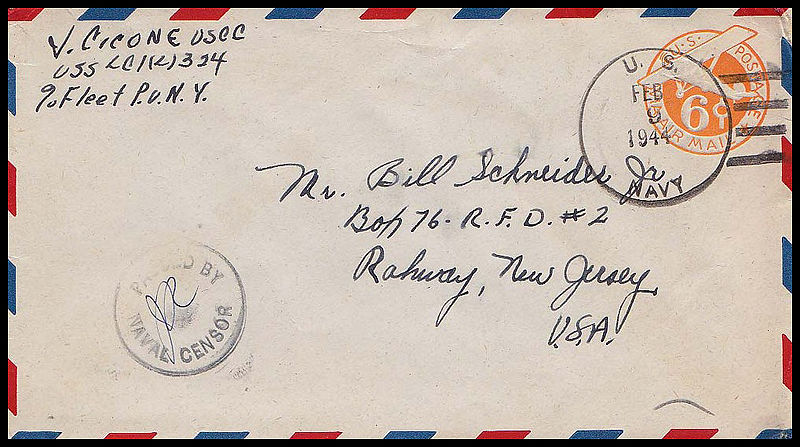 V. CICONE USCG
USS LCI(L) 324
℅ Fleet P.O. N.Y.
U.S. POSTAGE
6¢
AIR MAIL
U. S.
FEB
9
1944
NAVY
Mr. Bill Schneider Jr.
Box 76 - R.F.D. #2
Rahway, New Jersey
U.S.A.
PASSED BY
NAVAL CENSOR